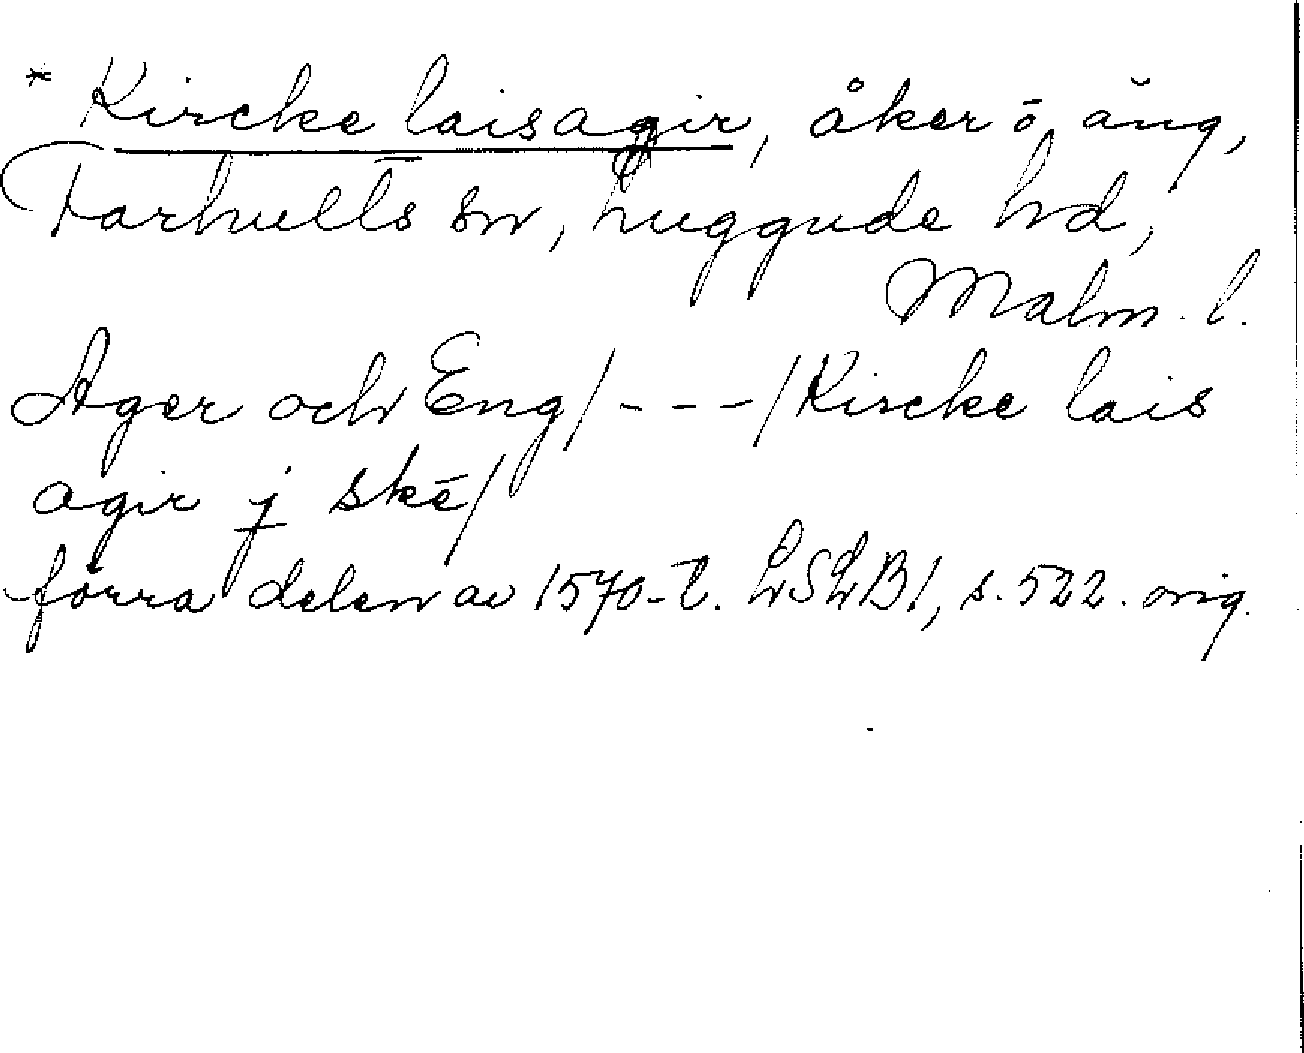 * Kircke lais agir, åker o äng,
Farhults sn, Luggude hd,
Malm. l.
Ager och Eng/---/Kircke lais
agir j skē/
förra delen av 1570-t. LSLB1, s. 522. orig.